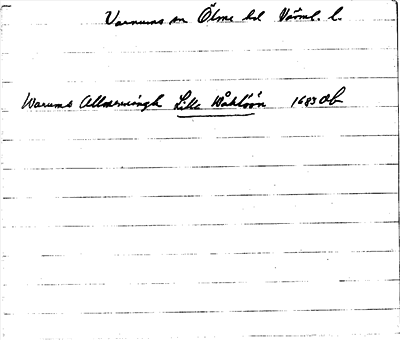 Varnums sn Ölme hd Värml. l.
Warums Allmenningh Lille Wåhlöön 1683 Jb